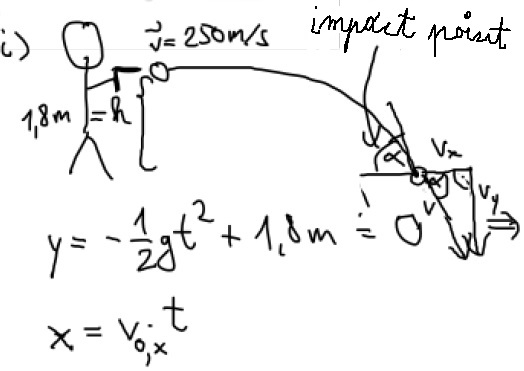 i)
v⃗ = 250m/s
impact point
1,8m = h
α
v_x
α
v
v_y
y = -1/2 gt² + 1,8m = 0 ⇒
x = v_{0,x} t